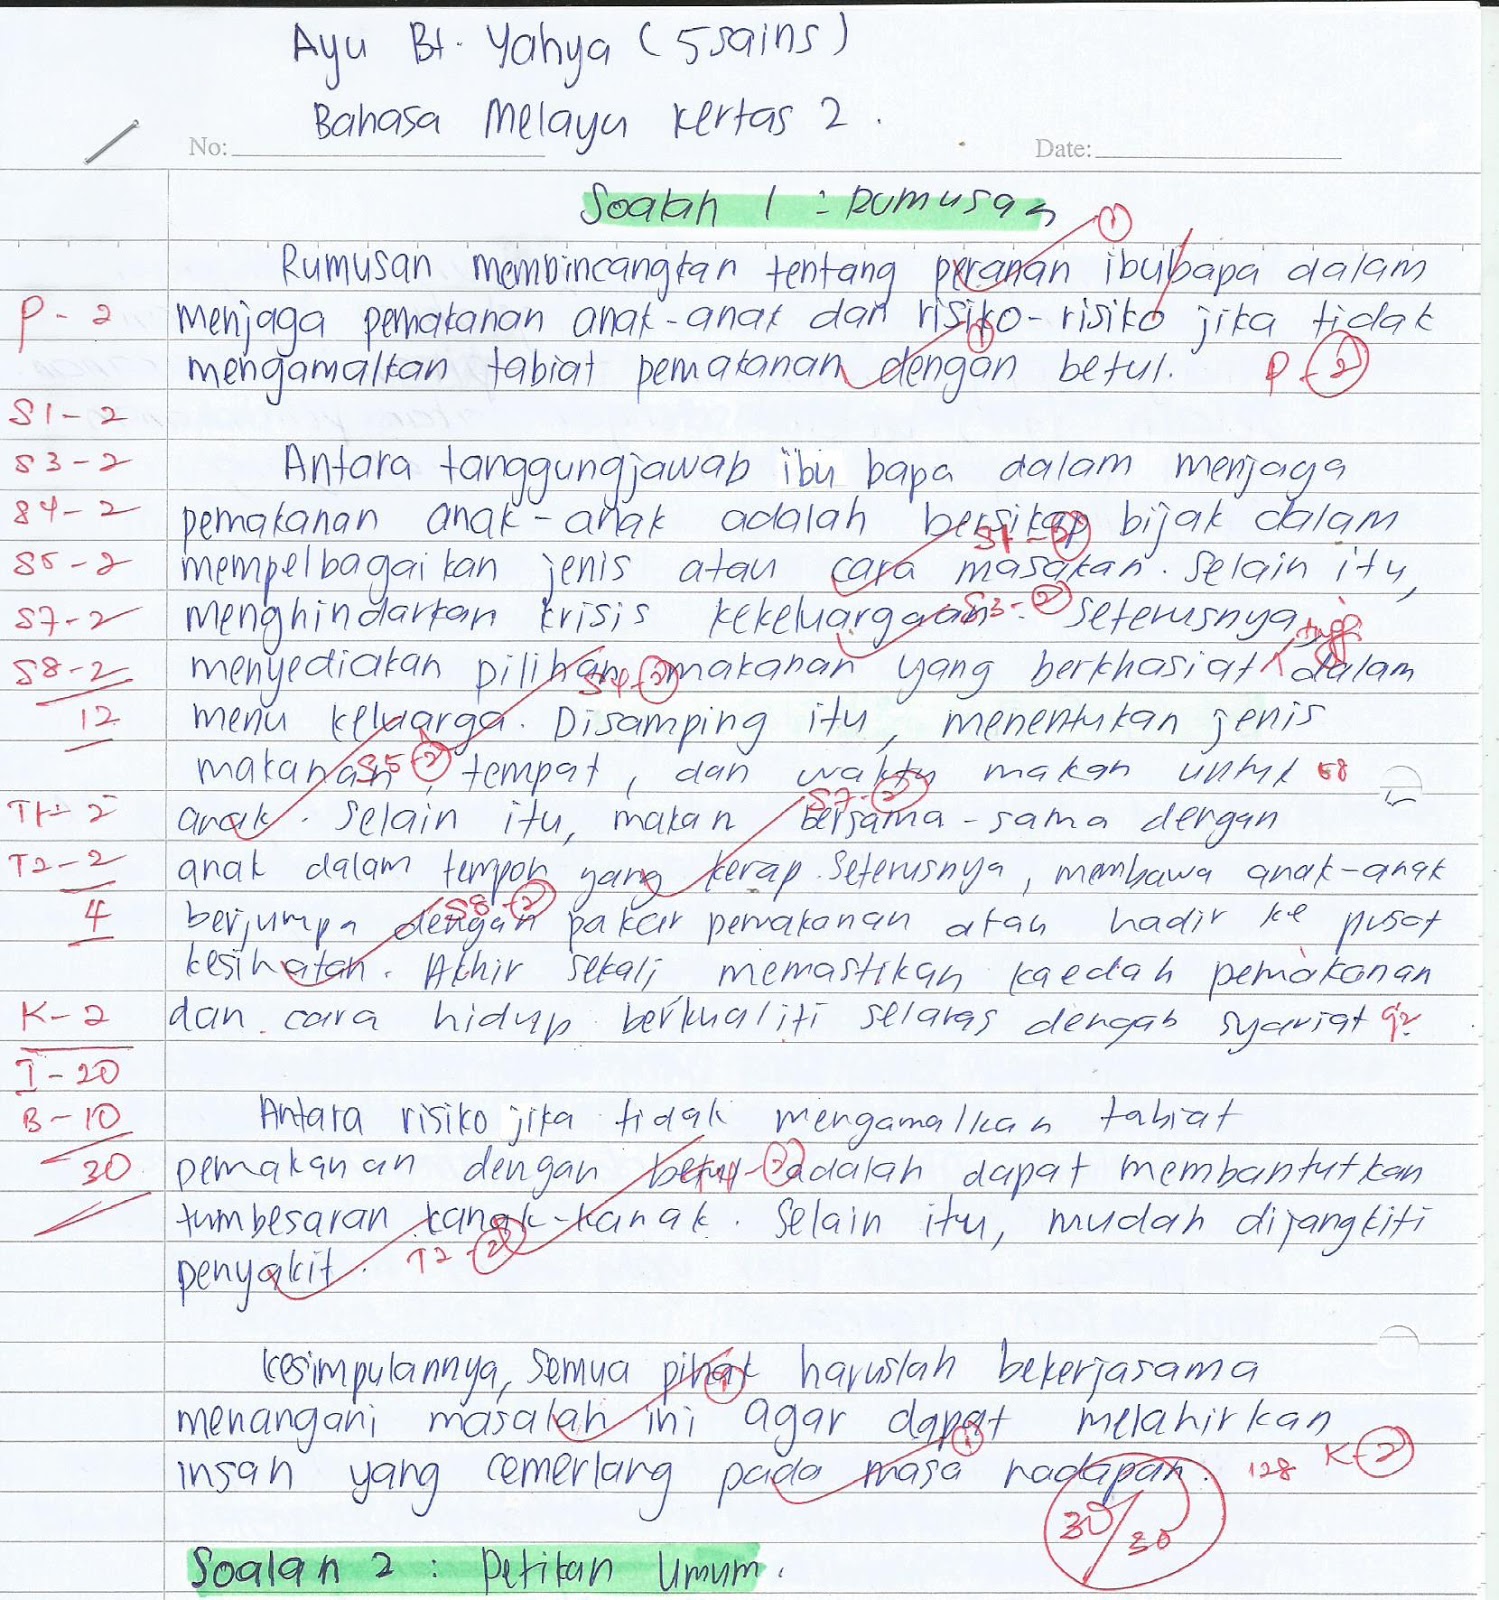 Ayu Bt. Yahya (5 sains)
Bahasa Melayu Kertas 2.
No:
Date:
Soalan 1 : Rumusan
1
Rumusan membincangkan tentang peranan ibubapa dalam
P - 2 menjaga pemakanan anak-anak dan risiko-risiko jika tidak
1
mengamalkan tabiat pemakanan dengan betul. P - 2
S1 - 2
S3 - 2 Antara tanggungjawab ibu bapa dalam menjaga
S4 - 2 pemakanan anak-anak adalah bersikap bijak dalam
S1 - 2
S5 - 2 mempelbagaikan jenis atau cara masakan. Selain itu,
S7 - 2 menghindarkan krisis kekeluargaan. S3 - 2 Seterusnya,
tinggi
S8 - 2 menyediakan pilihan makanan yang berkhasiat dalam
S4 - 2
12 menu keluarga. Disamping itu, menentukan jenis
makanan, tempat, dan waktu makan untuk 68
S5 - 2
S7 - 2
T1 - 2 anak. Selain itu, makan bersama-sama dengan
T2 - 2 anak dalam tempoh yang kerap. Seterusnya, membawa anak-anak
S8 - 2
4 berjumpa dengan pakar pemakanan atau hadir ke pusat
kesihatan. Akhir sekali memastikan kaedah pemakanan
K - 2 dan cara hidup berkualiti selaras dengan syariat 92
I - 20
B - 10 Antara risiko jika tidak mengamalkan tabiat
30 pemakanan dengan betul adalah dapat membantutkan
T1 - 2
tumbesaran kanak-kanak. Selain itu, mudah dijangkiti
penyakit. T2 - 2
Kesimpulannya, semua pihak haruslah bekerjasama
1
menangani masalah ini agar dapat melahirkan
1
insan yang cemerlang pada masa hadapan. 128 K - 2
30/30
Soalan 2 : Petikan Umum.